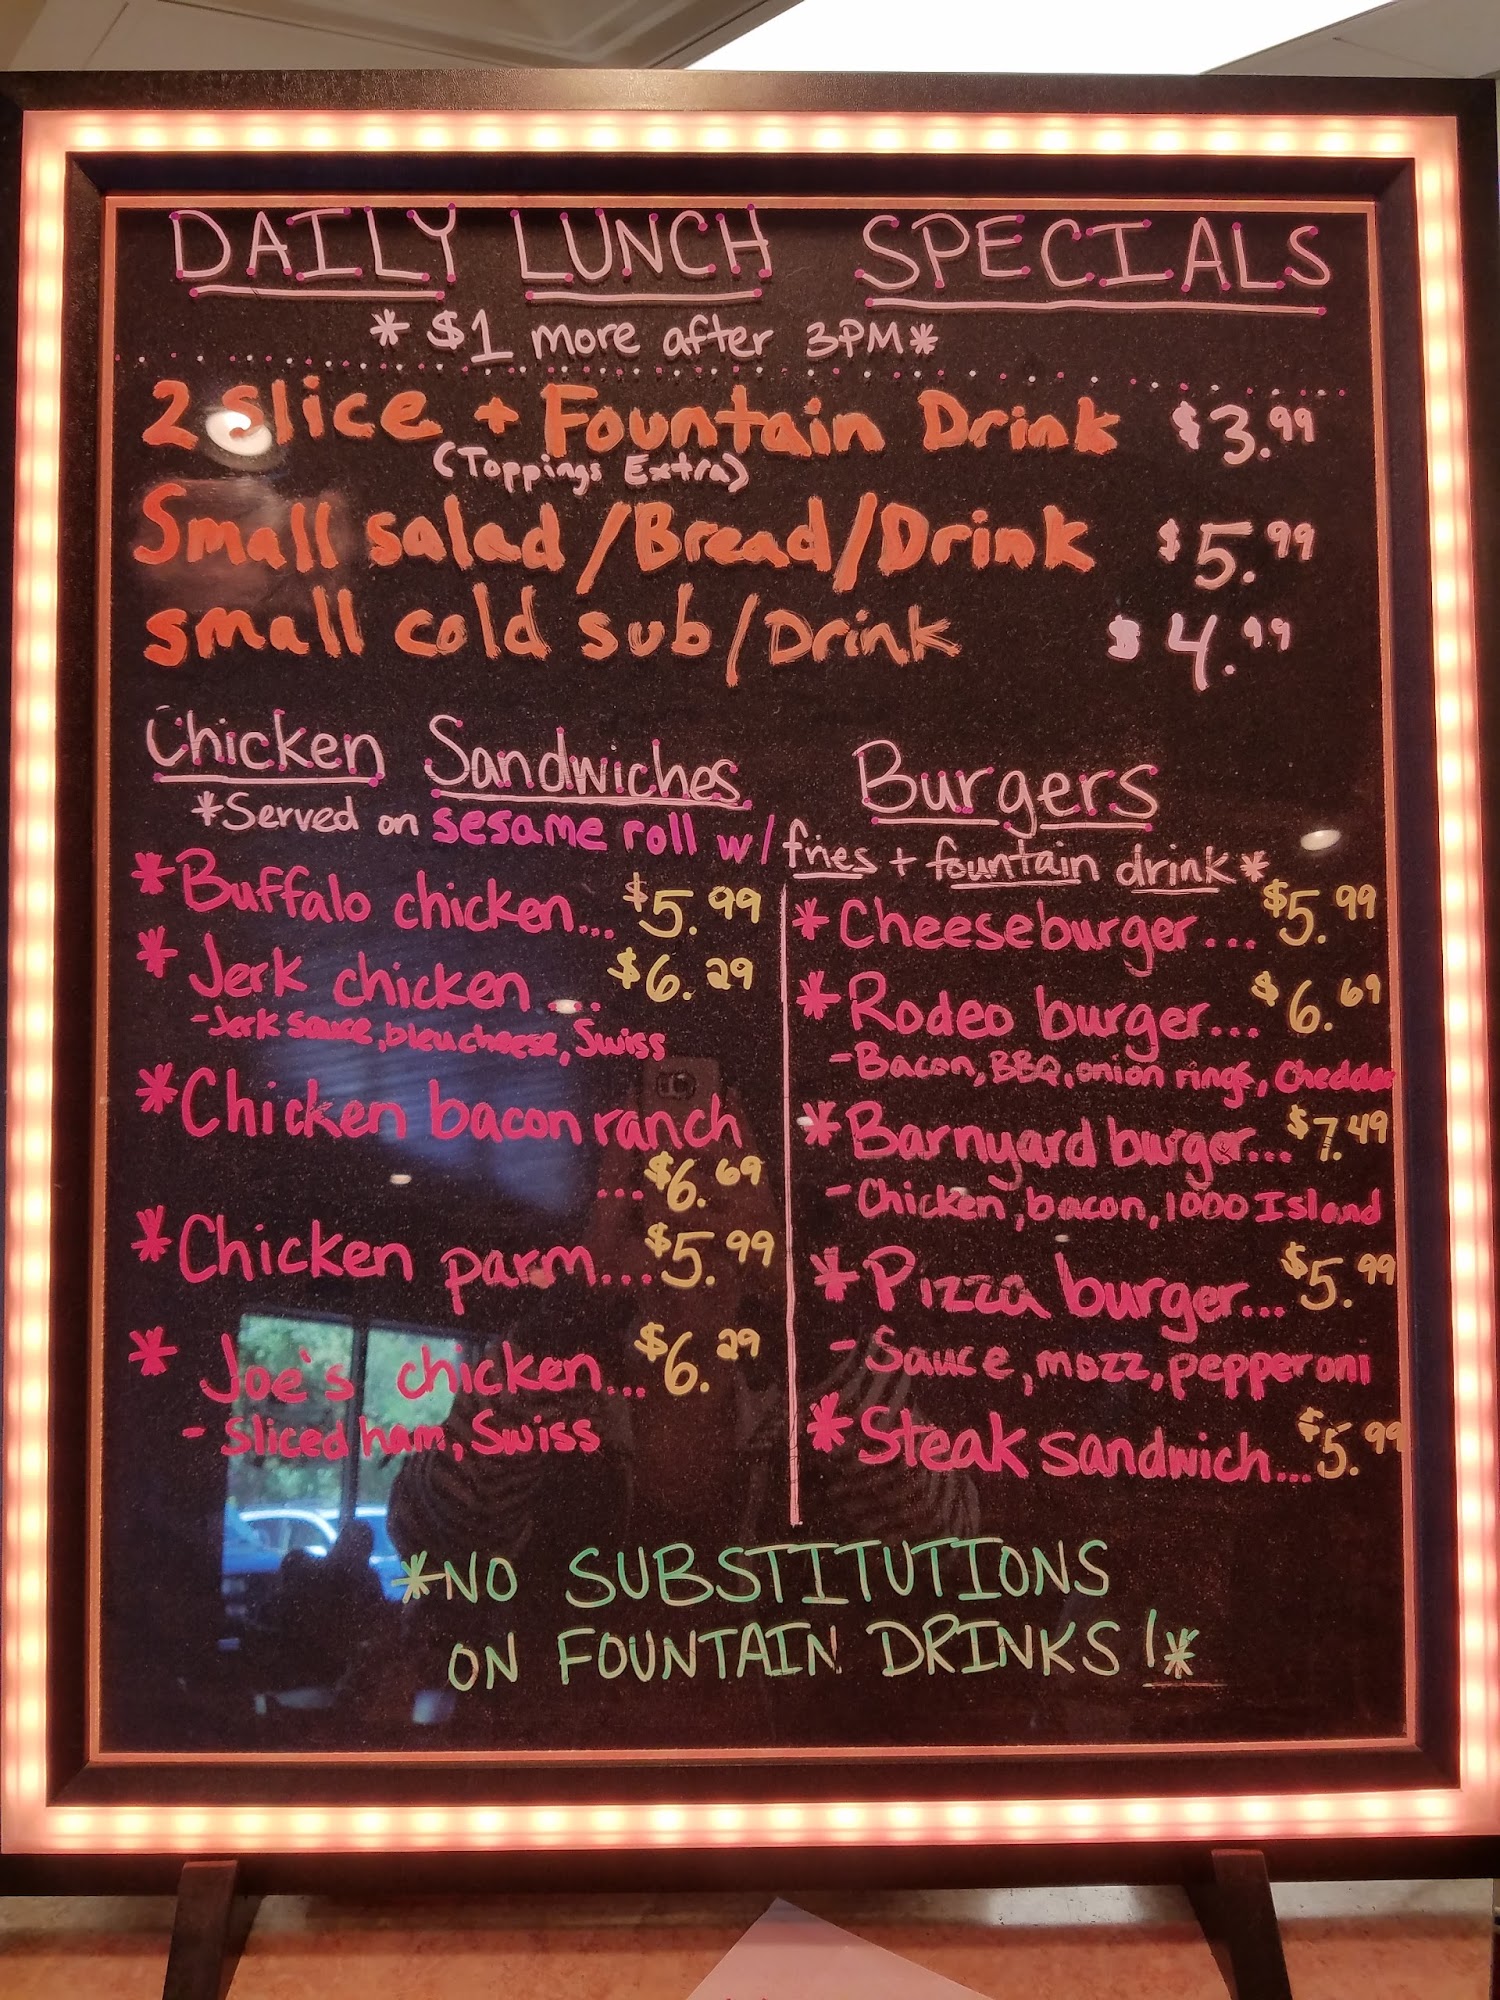 DAILY LUNCH SPECIALS
*$1 more after 3PM*
2 Slice + Fountain Drink $3.99
(Toppings Extra)
Small salad/Bread/Drink $5.99
small cold sub/Drink $4.99
Chicken Sandwiches
Burgers
*Served on sesame roll w/ fries + fountain drink*
*Buffalo chicken... $5.99
*Jerk chicken... $6.29
-Jerk sauce, bleu cheese, Swiss
*Chicken bacon ranch
...$6.69
*Chicken parm... $5.99
*Joe's chicken... $6.29
- Sliced ham, Swiss
*Cheeseburger... $5.99
*Rodeo burger... $6.69
-Bacon, BBQ, onion rings, Cheddar
*Barnyard burger... $7.49
-Chicken, bacon, 1000 Island
*Pizza burger... $5.99
-Sauce, mozz, pepperoni
*Steak sandwich... $5.99
*NO SUBSTITUTIONS
ON FOUNTAIN DRINKS!*